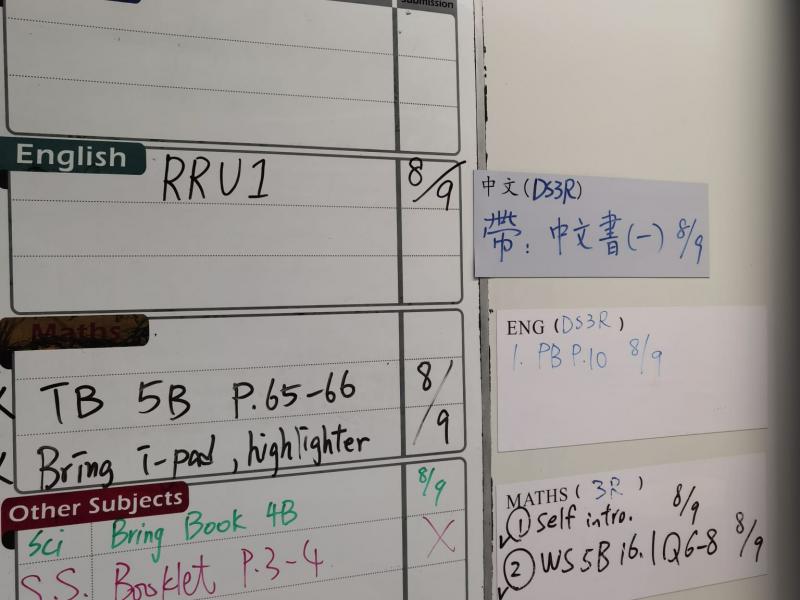 Submission
English
RRU1 8/9
Maths
TB 5B P.65-66 8/9
Bring i-pad, highlighter
Other Subjects
Sci Bring Book 4B 8/9
S.S. Booklet P.3-4 X
中文(DS3R)
帶：中文書(一) 8/9
ENG (DS3R)
1. PB P.10 8/9
MATHS (3R)
① Self intro. 8/9
② WS 5B i6.1 Q6-8 8/9